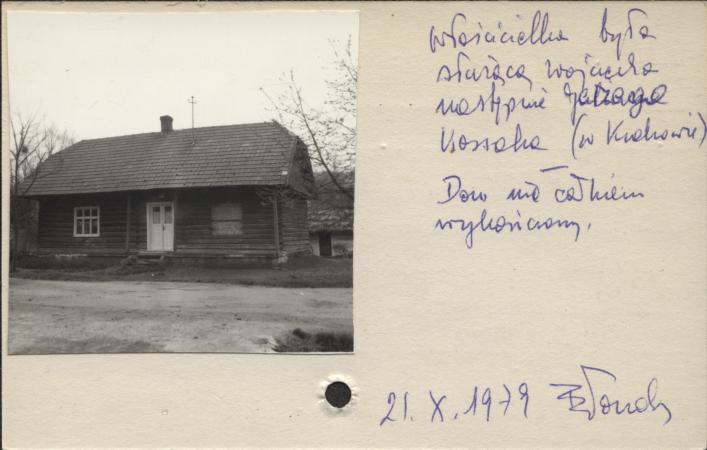 właścicielka była
służącą wojaczka
następnie
Kossaka (w Krakowie)
Dom nie całkiem
wykończony.
21. X. 1979